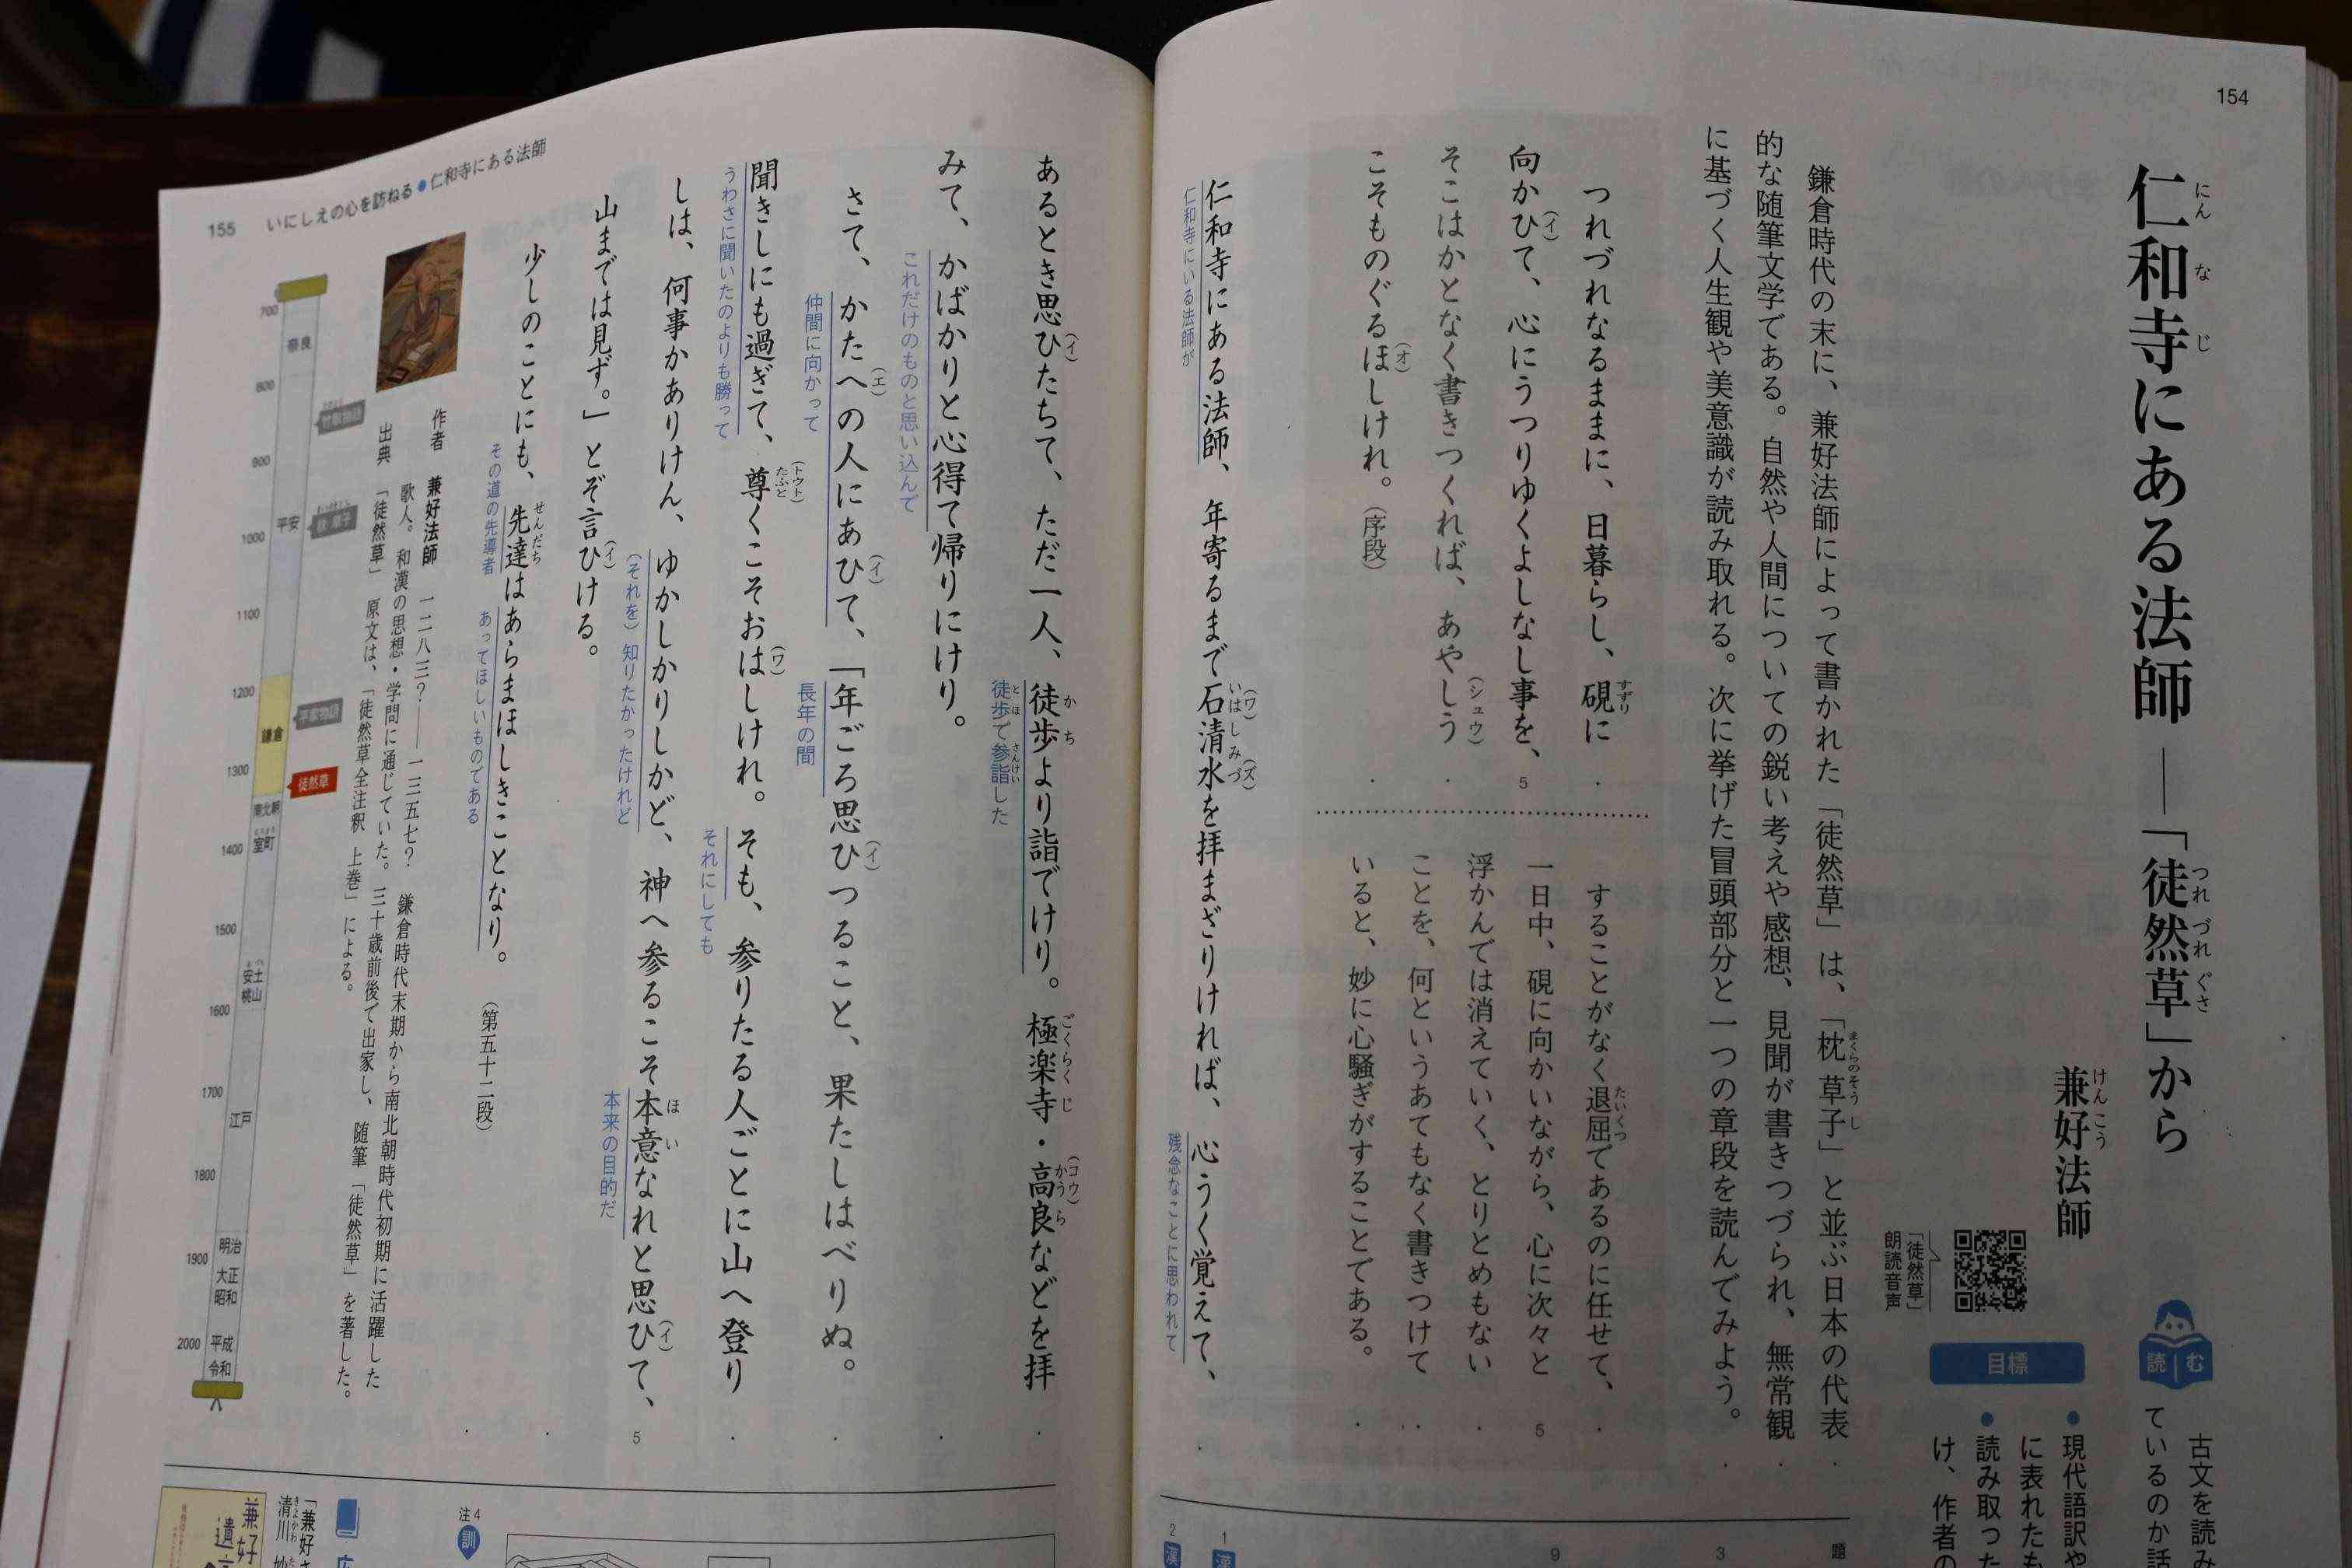 154
仁和寺にある法師 ――「徒然草」から
にんなじ
つれづれぐさ
兼好法師
けんこう
読む
古文を読み
ているのか話
目標
現代語訳や
に表れたも
読み取った
け、作者の
「徒然草」
朗読音声
鎌倉時代の末に、兼好法師によって書かれた「徒然草」は、「枕草子」と並ぶ日本の代表
まくらのそうし
的な随筆文学である。自然や人間についての鋭い考えや感想、見聞が書きつづられ、無常観
に基づく人生観や美意識が読み取れる。次に挙げた冒頭部分と一つの章段を読んでみよう。
つれづれなるままに、日暮らし、硯に
すずり
向かひて、心にうつりゆくよしなし事を、
(イ)
5
そこはかとなく書きつくれば、あやしう
(シュウ)
こそものぐるほしけれ。(序段)
(オ)
することがなく退屈であるのに任せて、
たいくつ
一日中、硯に向かいながら、心に次々と
5
浮かんでは消えていく、とりとめもない
ことを、何というあてもなく書きつけて
いると、妙に心騒ぎがすることである。
仁和寺にある法師、年寄るまで石清水を拝まざりければ、心うく覚えて、
(ワ)
いはしみづ
(ズ)
仁和寺にいる法師が
残念なことに思われて
題
3
9
1
漢
2
漢
あるとき思ひたちて、ただ一人、徒歩より詣でけり。極楽寺・高良などを拝
(イ)
かち
ごくらくじ
(コウ)
かうら
徒歩で参詣した
とほ
さんけい
みて、かばかりと心得て帰りにけり。
これだけのものと思い込んで
さて、かたへの人にあひて、「年ごろ思ひつること、果たしはべりぬ。
(エ)
(イ)
(イ)
仲間に向かって
長年の間
聞きしにも過ぎて、尊くこそおはしけれ。そも、参りたる人ごとに山へ登り
(トウト)
たふと
(ワ)
うわさに聞いたのよりも勝って
それにしても
しは、何事かありけん、ゆかしかりしかど、神へ参るこそ本意なれと思ひて、
ほい
(イ)
5
(それを)知りたかったけれど
本来の目的だ
山までは見ず。」とぞ言ひける。
(イ)
少しのことにも、先達はあらまほしきことなり。
せんだち
(第五十二段)
その道の先導者
あってほしいものである
作者 兼好法師 一二八三?――一三五七? 鎌倉時代末期から南北朝時代初期に活躍した
歌人。和漢の思想・学問に通じていた。三十歳前後で出家し、随筆「徒然草」を著した。
出典 「徒然草」 原文は、「徒然草全注釈 上巻」による。
155 いにしえの心を訪ねる●仁和寺にある法師
700
奈良
800
竹取物語
900
平安
枕草子
1000
1100
1200
平家物語
鎌倉
1300
徒然草
南北朝
1400
室町
1500
安土
桃山
1600
1700
江戸
1800
1900
明治
大正
昭和
2000
平成
令和
注4
訓
「兼好さ
清川 妙
きよかわ
兼好
遺言